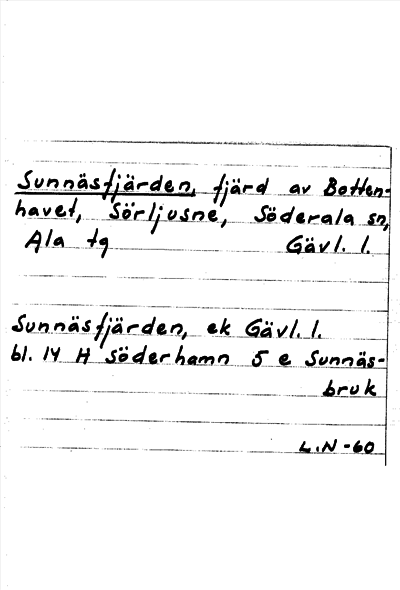 Sunnäsfjärden, fjärd av Botten-
havet, Sörljusne, Söderala sn,
Ala tg Gävl. l.
Sunnäsfjärden, ek Gävl. l.
bl. 14 H Söderhamn 5 e Sunnäs-
bruk
L.N -60